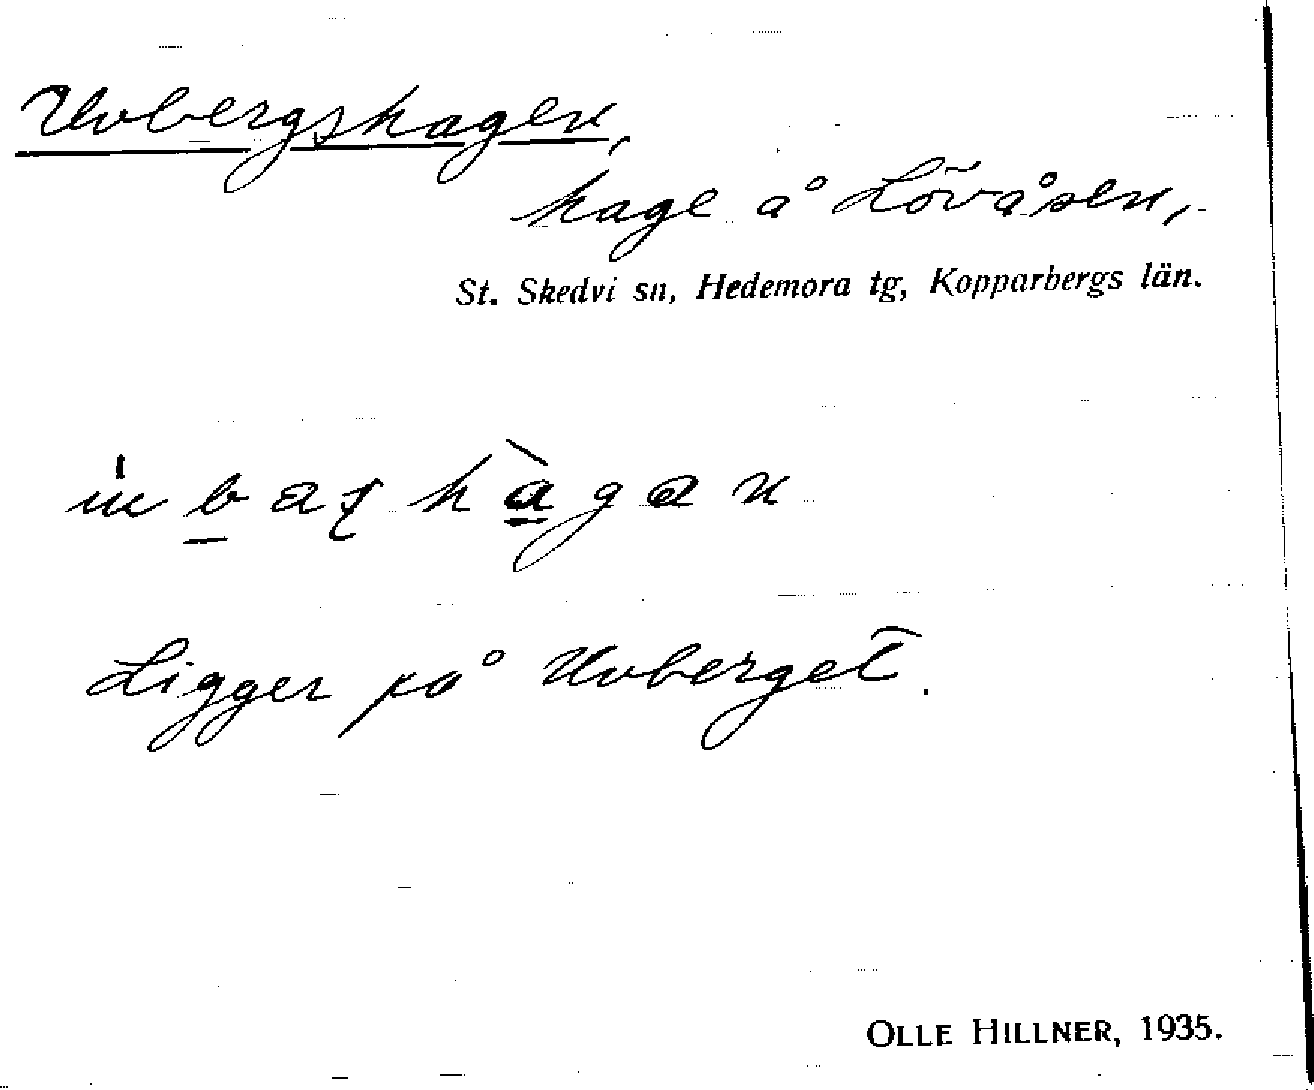 Uvbergshagen,
hage å Lövåsen,
St. Skedvi sn, Hedemora tg, Kopparbergs län.
Ligger på Uvberget.
OLLE HILLNER, 1935.